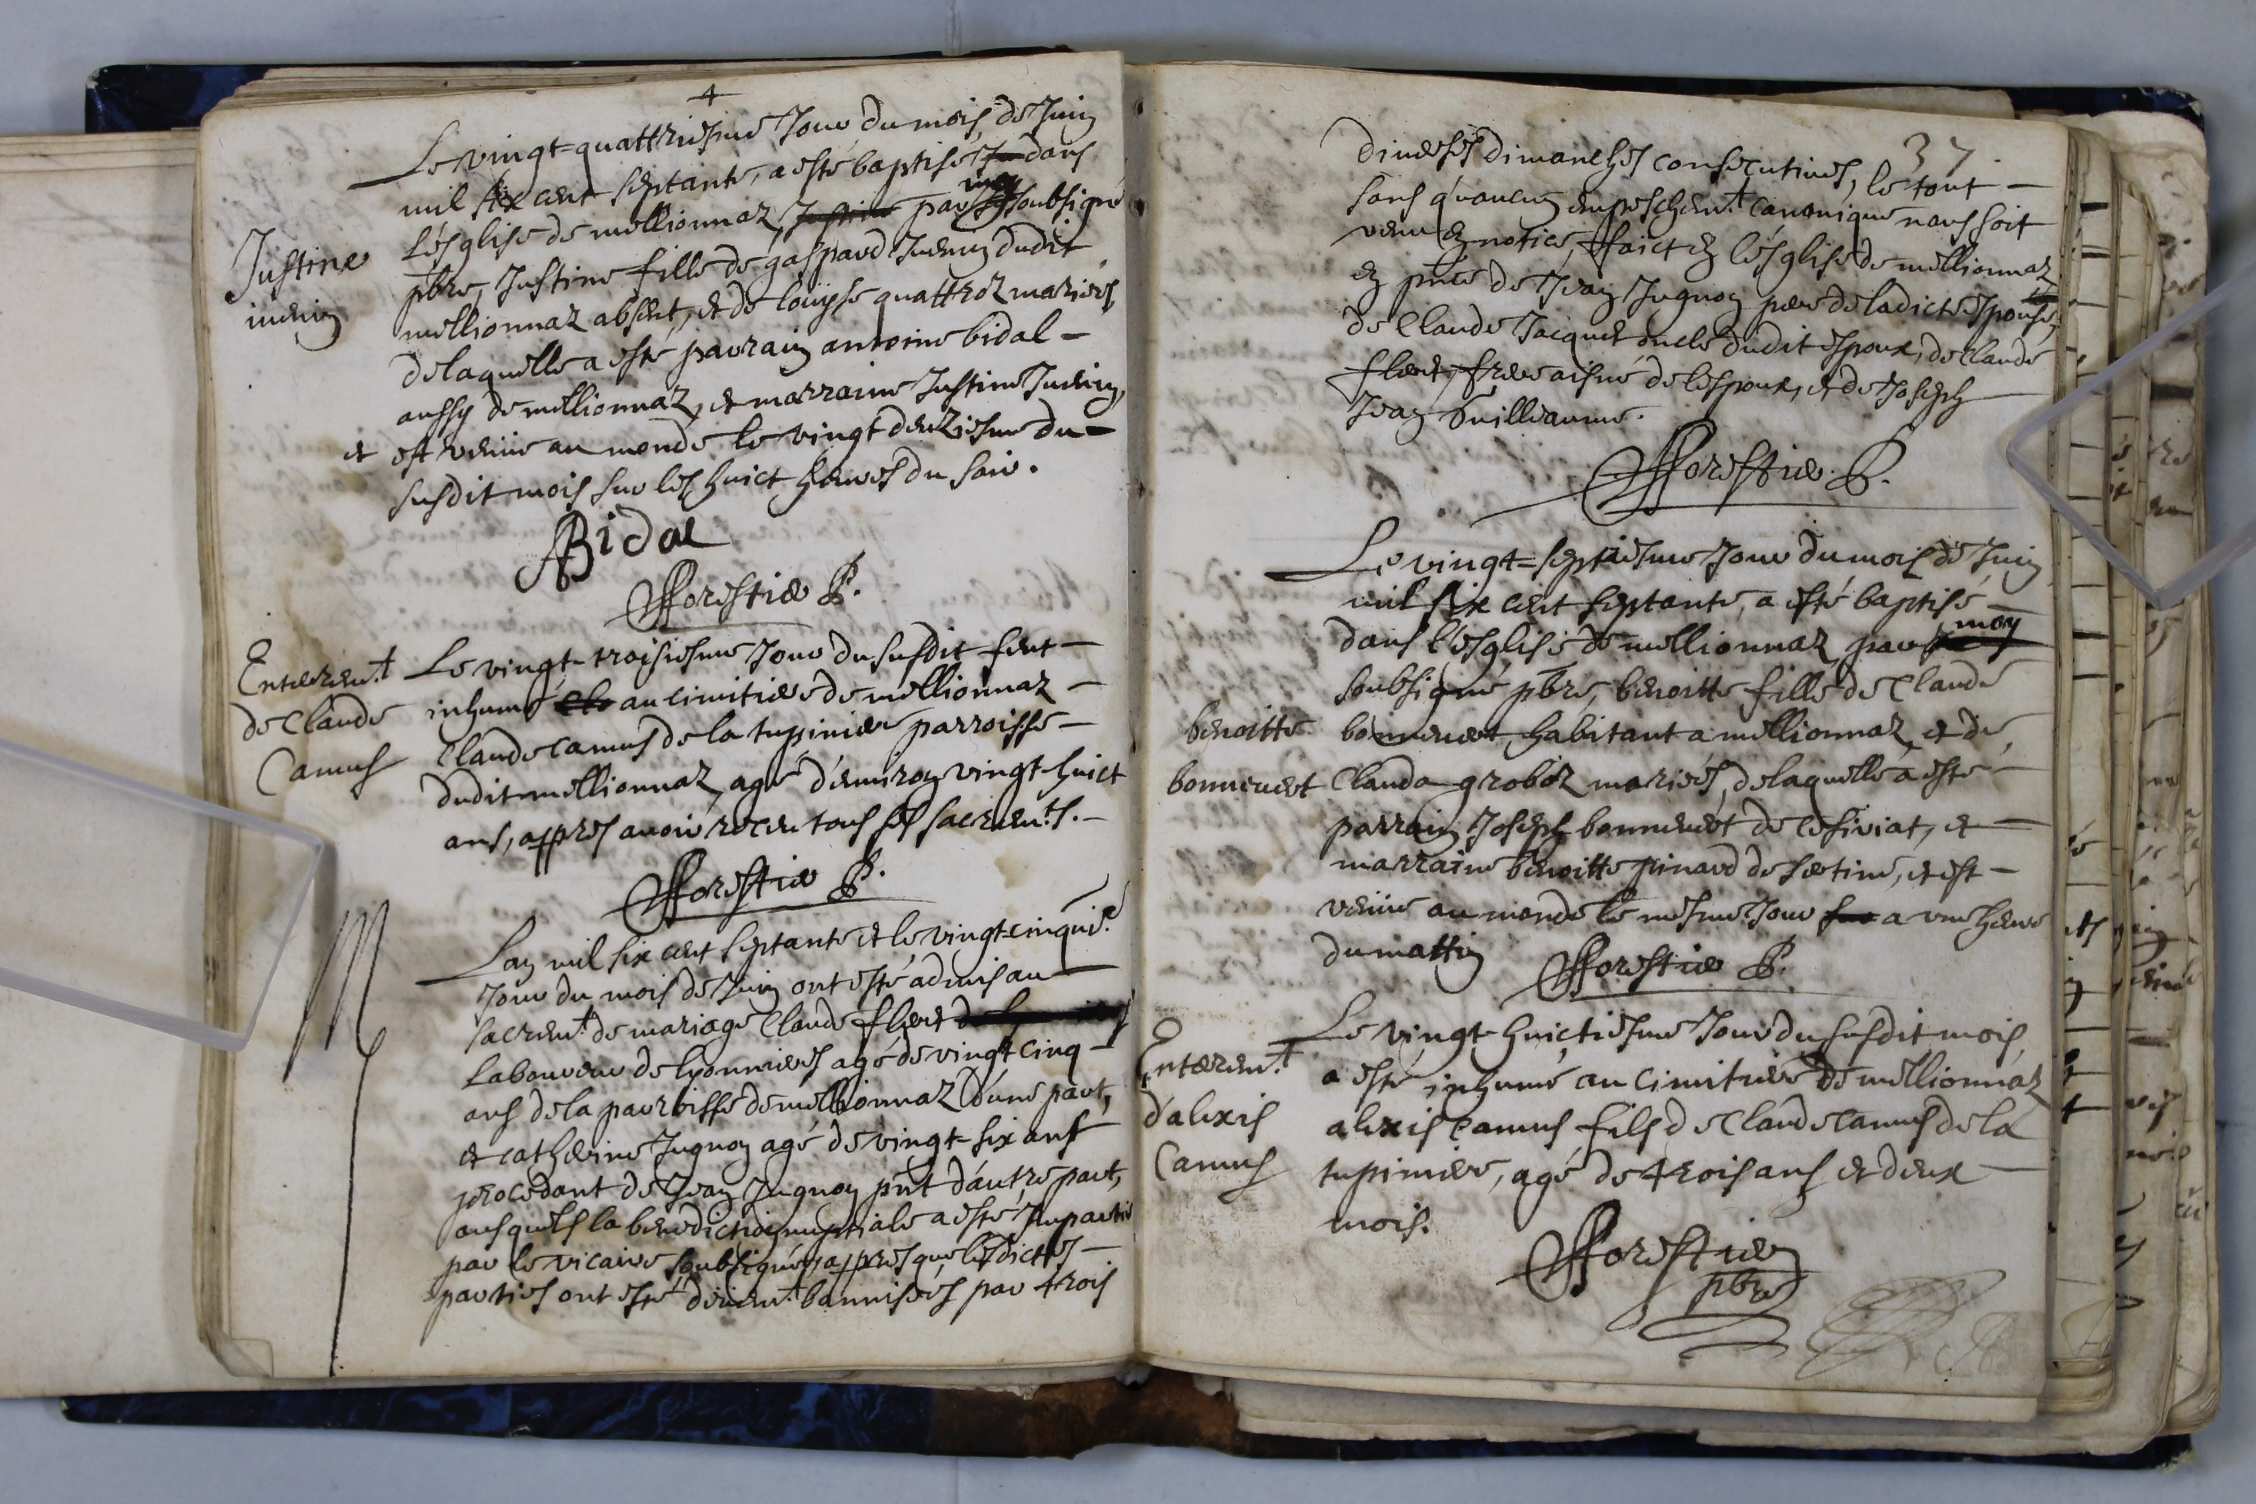 4
Le vingt=quattriesme Jour du mois de Juin
mil six cent septante, a esté baptisé Ju dans
l'esglise de mellionnaz, Justine par moy soubsigné
pbre, Justine fille de gaspard Juenin dudit
mellionnaz absent, et de louyse quattroz mariés
delaquelle a esté parrain antoine bidal -
aussy de mellionnaz, et marraine Justine Juenin,
et est venüe au monde le vingt deuziesme du -
susdit mois sur les huict heures du soir.
Justine
iuenin
ABidal
fforestier P.
Enterem.t
de Claude
Camus
Le vingt-troisiesme Jour du susdit feut -
inhumé au cimitiere de mellionnaz -
Claude camus de la tupiniere parroisse -
dudit mellionnaz, agé d'environ vingt-huict
ans, appres avoir receu tous ses sacrem.ts. -
fforestier P.
M
Lan mil six cent septante et le vingt-cinquie.e
Jour du mois de Juin ont esté admis au
sacrem.t de mariage Claude flert
Laboureur de lyonnieres agé de vingt cinq -
ans de la parroisse de mellionnaz d'une part,
et catherine Jugnon agé de vingt=six ans
procedant de Jean Jugnon pnt d'autre part,
ausquels la benediction nuptiale a esté Impartie
par le vicaire soubsigné, appres que lesdictes -
parties ont esté deüem.t bannisées par trois
37.
diverses dimanches consecutives, le tout -
sans qu'aucun empeschem.t canonique nous soit
venu en notice, ffaict en l'esglise de mellionnaz
en pnce de Jean Jugnon pere de ladicte espouse,
de Claude Jacquet oncle dudit espoux, de Claude
flert, frere aisné de l'espoux, et de Joseph
Jean Guilleaume.
fforestier P.
Le vingt=septiesme Jour du mois de Juin
mil six cent septante, a esté baptisé -
dans l'esglise de mellionnaz par moy
soubsigné pbre, benoitte fille de Claude
bonnevert habitant a mellionnaz, et de,
Clauda groboz mariés, delaquelle a esté -
parrain Joseph bonnevert de cesiriat, et -
marraine benoitte pinard de sertine, et est -
venüe au monde le mesme Jour sur a une heure
du mattin
benoitte
bonnevert
fforestier P.
Enterem.t
d'alexis
Camus
Le vingt-huictiesme Jour du susdit mois
a esté inhumé au cimitiere de mellionnaz
alexis Camus fils de Claude Camus de la
tupiniere, agé de trois ans et deux -
mois.
fforestier
pbre